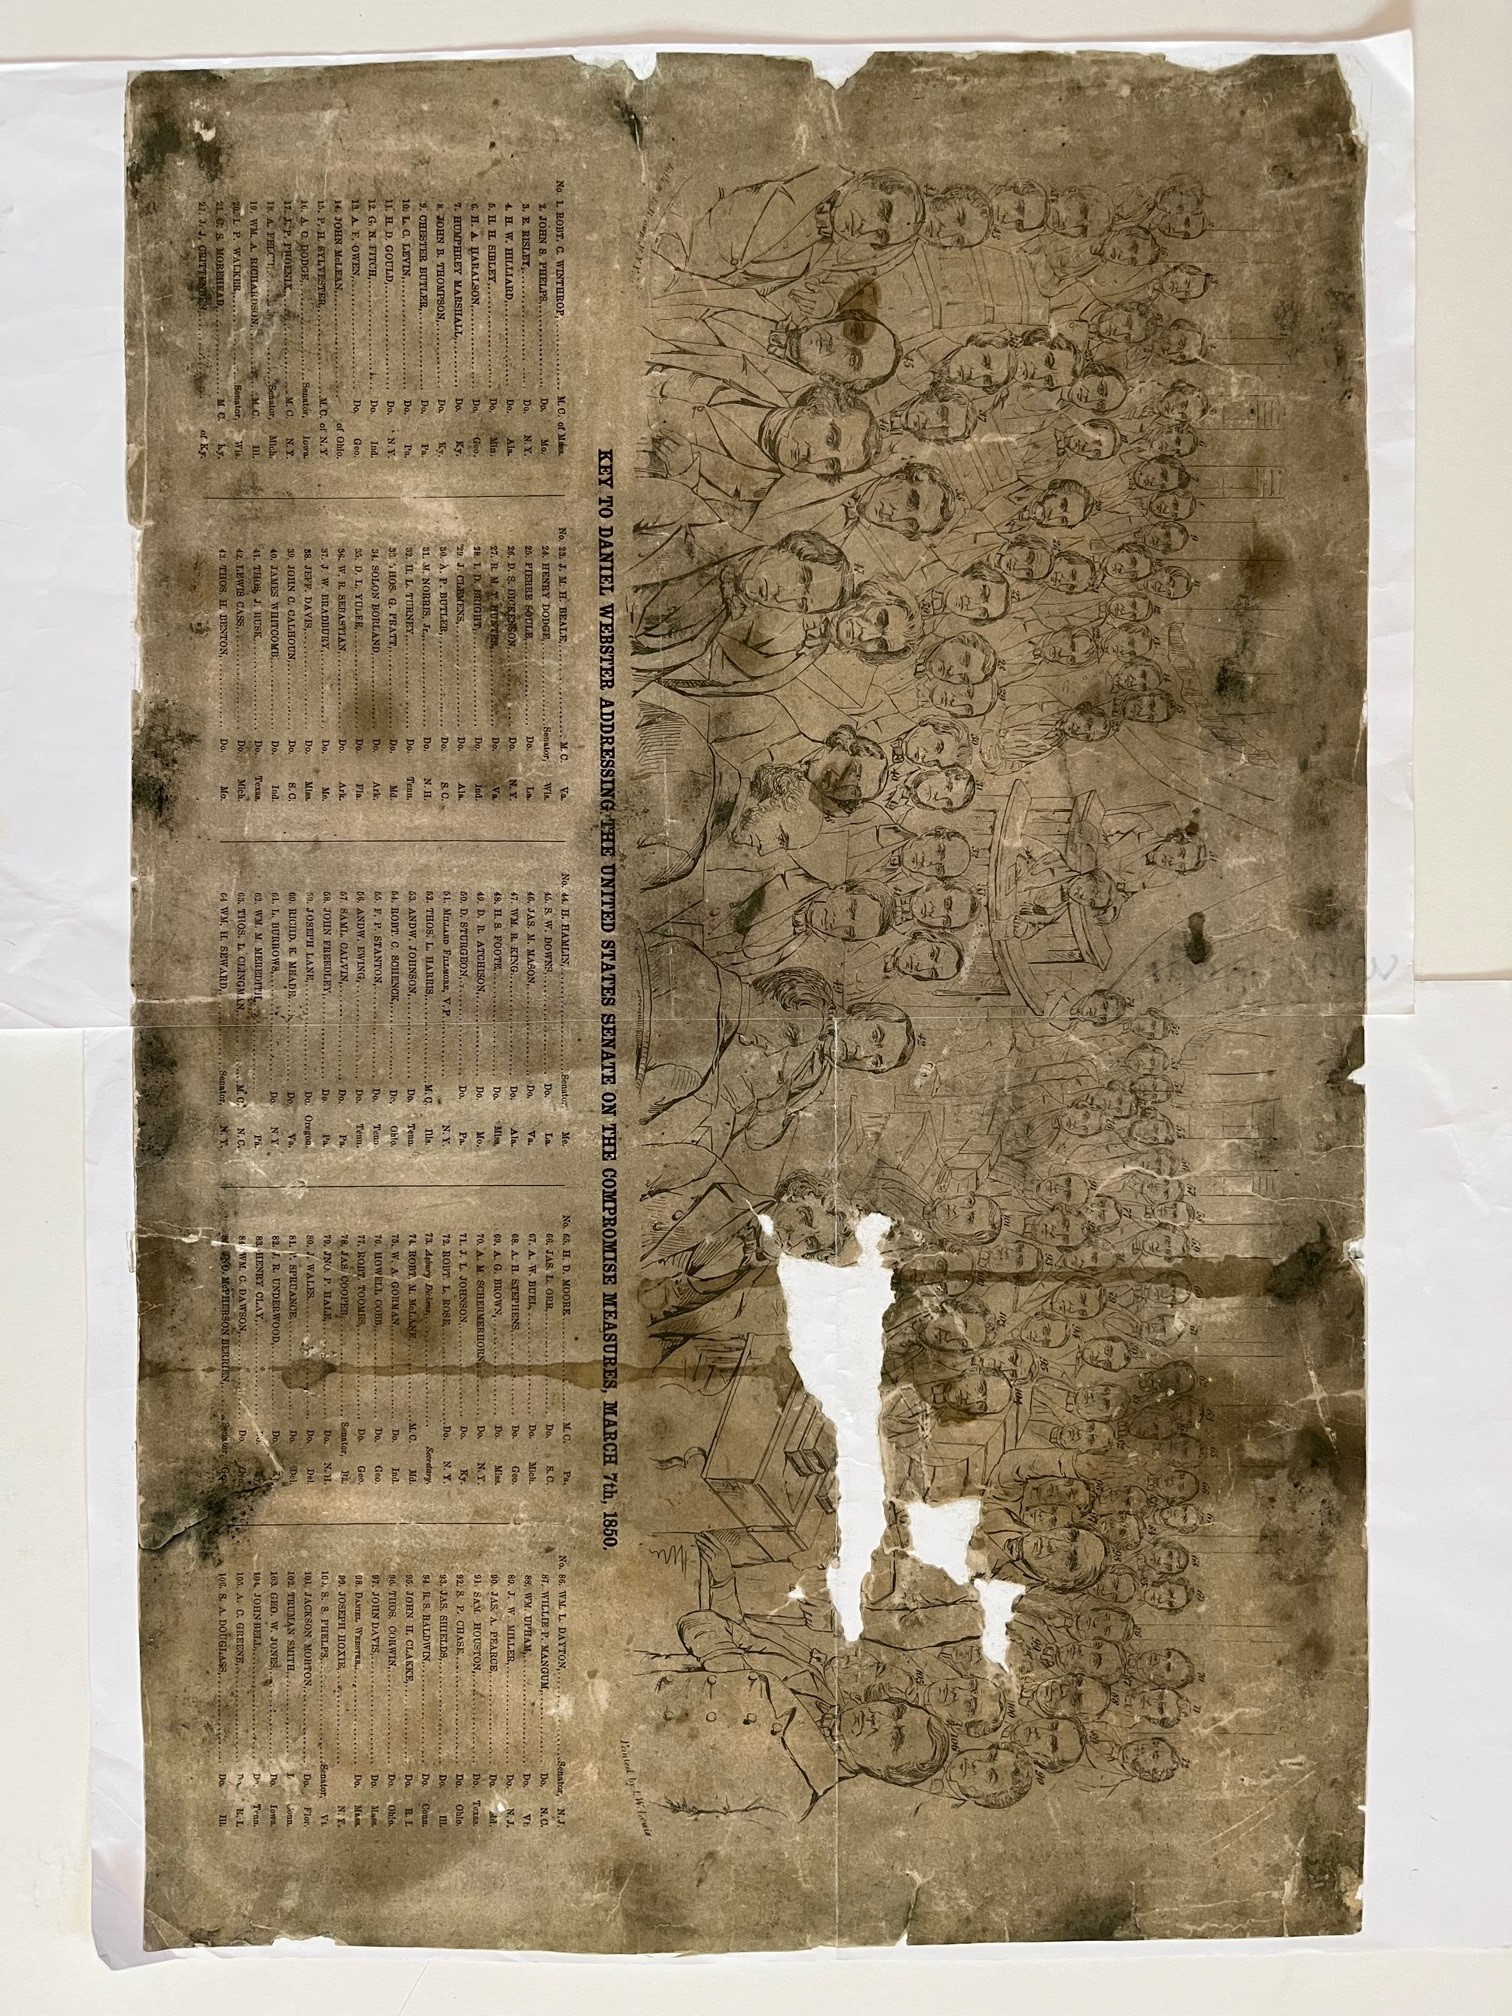 Printed by L W Lewis
KEY TO DANIEL WEBSTER ADDRESSING THE UNITED STATES SENATE ON THE COMPROMISE MEASURES, MARCH 7th, 1850.
No. 1. ROBT. C. WINTHROP, M. C. of Mass.
2. JOHN S. PHELPS, Do. Mo.
3. E. RISLEY, Do. N. Y.
4. H. W. HILLIARD, Do. Ala.
5. H. H. SIBLEY, Do. Min.
6. H. A. HARALSON, Do. Geo.
7. HUMPHREY MARSHALL, Do. Ky.
8. JOHN B. THOMPSON, Do. Ky.
9. CHESTER BUTLER, Do. Pa.
10. L. C. LEVIN, Do. Pa.
11. H. D. GOULD, Do. N. Y.
12. G. N. FITCH, Do. Ind.
13. A. F. OWEN, Do. Geo.
14. JOHN McLEAN, of Ohio.
15. P. H. SYLVESTER, M. C. of N. Y.
16. A. C. DODGE, Senator, Iowa.
17. J. P. PHOENIX, M. C. N. Y.
18. A. FELCH, Senator, Mich.
19. WM. A. RICHARDSON, M. C. Ill.
20. I. P. WALKER, Senator, Wis.
21. C. S. MOREHEAD, M. C. Ky.
22. J. J. CRITTENDEN, of Ky.
No. 23. J. M. H. BEALE, M. C. Va.
24. HENRY DODGE, Senator, Wis.
25. PIERRE SOULE, Do. La.
26. D. S. DICKENSON, Do. N. Y.
27. R. M. T. HUNTER, Do. Va.
28. J. D. BRIGHT, Do. Ind.
29. J. CLEMENS, Do. Ala.
30. A. P. BUTLER, Do. S. C.
31. M. NORRIS, Jr., Do. N. H.
32. H. L. TURNEY, Do. Tenn.
33. THOS. G. PRATT, Do. Md.
34. SOLON BORLAND, Do. Ark.
35. D. L. YULEE, Do. Fla.
36. W. R. SEBASTIAN, Do. Ark.
37. J. W. BRADBURY, Do. Me.
38. JEFF. DAVIS, Do. Miss.
39. JOHN C. CALHOUN, Do. S. C.
40. JAMES WHITCOMB, Do. Ind.
41. THOS. J. RUSK, Do. Texas.
42. LEWIS CASS, Do. Mich.
43. THOS. H. BENTON, Do. Mo.
No. 44. H. HAMLIN, Senator, Me.
45. S. W. DOWNS, Do. La.
46. JAS. M. MASON, Do. Va.
47. WM. R. KING, Do. Ala.
48. H. S. FOOTE, Do. Miss.
49. D. R. ATCHISON, Do. Mo.
50. D. STURGEON, Do. Pa.
51. MILLARD FILLMORE, V. P. N. Y.
52. THOS. L. HARRIS, M. C. Ills.
53. ANDW. JOHNSON, Do. Tenn.
54. ROBT. C. SCHENCK, Do. Ohio.
55. F. P. STANTON, Do. Tenn.
56. ANDW. EWING, Do. Tenn.
57. SAML. CALVIN, Do. Pa.
58. JOHN FREEDLEY, Do. Pa.
59. JOSEPH LANE, Do. Oregon.
60. RICHD. K. MEADE, Do. Va.
61. L. BURROWS, Do. N. Y.
62. WM. M. MEREDITH, Pa.
63. THOS. L. CLINGMAN, M. C. N. C.
64. WM. H. SEWARD, Senator, N. Y.
No. 65. H. D. MOORE, M. C. Pa.
66. JAS. L. ORR, Do. S. C.
67. A. W. BUEL, Do. Mich.
68. A. H. STEPHENS, Do. Geo.
69. A. G. BROWN, Do. Miss.
70. A. M. SCHERMERHORN, Do. N. Y.
71. J. L. JOHNSON, Do. Ky.
72. ROBT. L. ROSE, Do. N. Y.
73. Asbury Dickens, Secretary.
74. ROBT. M. McLANE, M. C. Md.
75. W. A. GORMAN, Do. Ind.
76. HOWELL COBB, Do. Geo.
77. ROBT. TOOMBS, Do. Geo.
78. JAS. COOPER, Senator, Pa.
79. JNO. P. HALE, Do. N. H.
80. J. WALES, Do. Del.
81. P. SPRUANCE, Do. Del.
82. J. R. UNDERWOOD, Do.
83. HENRY CLAY,
84. WM. C. DAWSON, Do. Geo.
McPHERSON BERRIEN, Senator,
No. 86. WM. L. DAYTON, Senator, N. J.
87. WILLIE P. MANGUM, Do. N. C.
88. WM. UPHAM, Do. Vt.
89. J. W. MILLER, Do. N. J.
90. JAS. A. PEARCE, Do.
91. SAM. HOUSTON, Do. Texas.
92. S. P. CHASE, Do. Ohio.
93. JAS. SHIELDS, Do. Ill.
94. R. S. BALDWIN, Do. Conn.
95. JOHN H. CLARKE, Do. R. I.
96. THOS. CORWIN, Do. Ohio.
97. JOHN DAVIS, Do. Mass.
98. DANIEL WEBSTER, Do. Mass.
99. JOSEPH HOXIE,
S. S. PHELPS, Senator, Vt.
101. JACKSON MORTON, Do. Flor.
102. TRUMAN SMITH,
103. GEO. W. JONES, Do. Iowa.
104. JOHN BELL, Tenn.
105. A. C. GREENE, R. I.
106. S. A. DOUGLASS, Do. Ill.